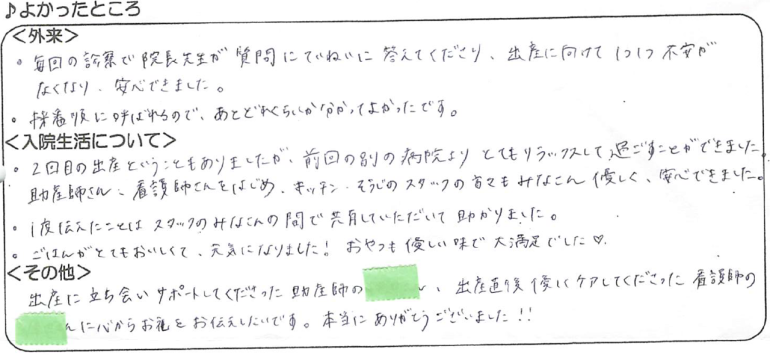 ♪よかったところ
<外来>
・毎回の診察で院長先生が質問にていねいに答えてくださり、出産に向けて1つ1つ不安が
なくなり、安心できました。
・採番順に呼ばれるので、あとどれくらいかわかってよかったです。
<入院生活について>
・2回目の出産ということもありましたが、前回の別の病院よりとてもリラックスして過ごすことができました。
助産師さん、看護師さんをはじめ、キッチン・そうじのスタッフの方々もみなさん優しく、安心できました。
・1度伝えたことはスタッフのみなさんの間で共有していただいて助かりました。
・ごはんがとてもおいしくて、元気になりました！おやつも優しい味で大満足でした♡
<その他>
出産に立ち会いサポートしてくださった助産師の、出産直後優しくケアしてくださった看護師の
んに心からお礼をお伝えしたいです。本当にありがとうございました！！